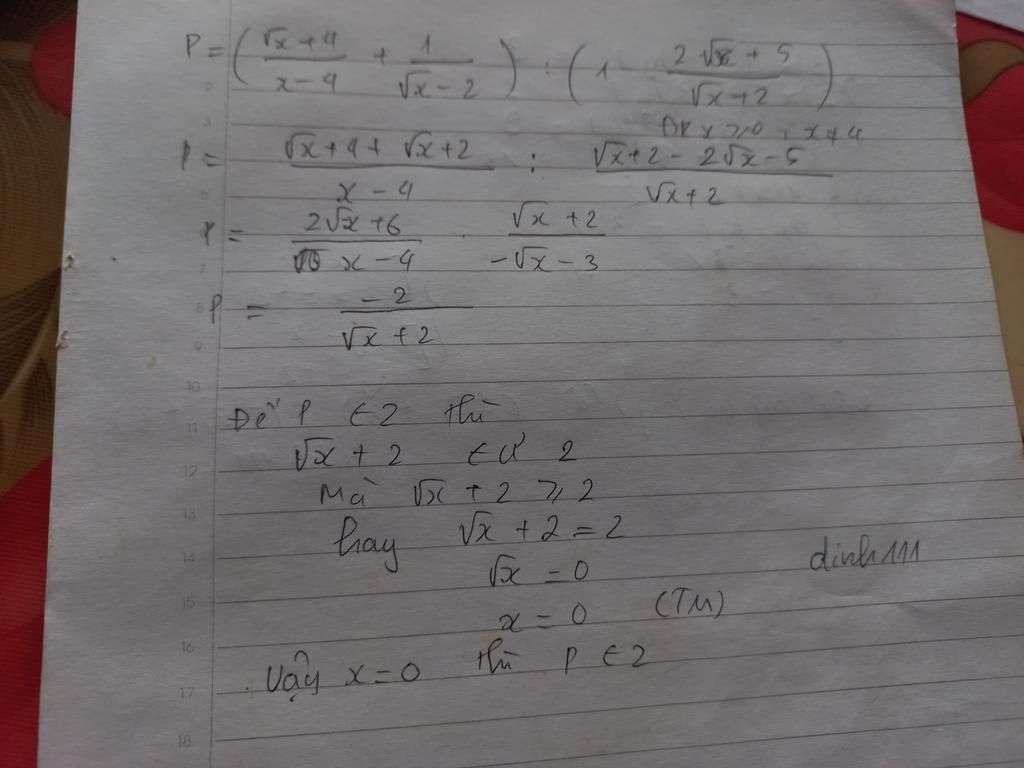 P = ( (√x + 4)/(x - 4) + 1/(√x - 2) ) : ( 1 - (2√x + 5)/(√x + 2) )
ĐK x ≥ 0 ; x ≠ 4
P = (√x + 4 + √x + 2)/(x - 4) : (√x + 2 - 2√x - 5)/(√x + 2)
P = (2√x + 6)/(x - 4) . (√x + 2)/(-√x - 3)
P = -2/(√x + 2)
Để P ∈ Z thì
√x + 2 ∈ Ư 2
Mà √x + 2 ≥ 2
hay √x + 2 = 2
√x = 0
dinh111
x = 0 (TM)
Vậy x = 0 thì P ∈ Z